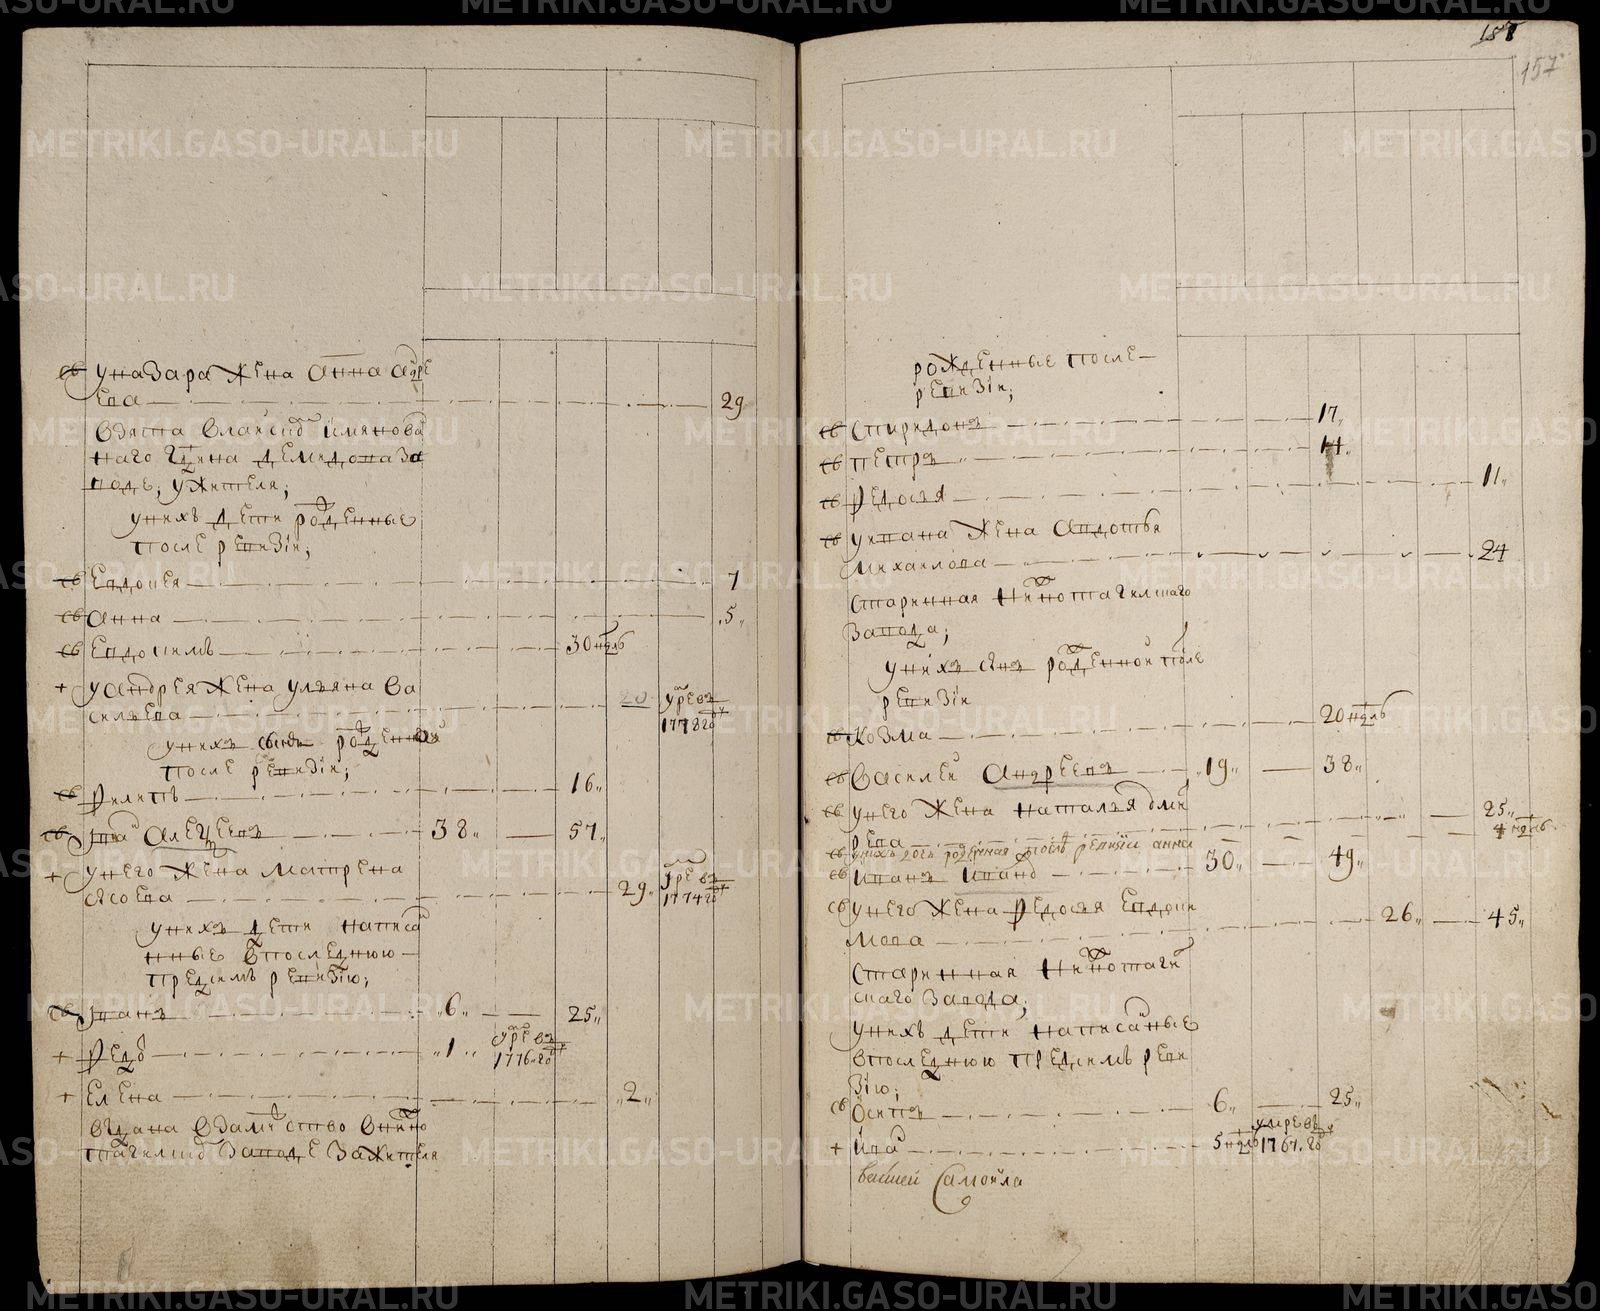 METRIKI.GASO-URAL.RU
св у назара жена анна андре
ева 29
взята в
наго г дина демидова за
воде, у жителя;
у нихъ дети рожденные
после ревизiи;
св Евдокея 7
св анна 5
св Евдокимъ 30 ндль
+ у андрея жена ульяна ва
сильева 20 умре въ
1778 го
у нихъ рожденной
после ревизiи;
св Филипъ 16
св иванъ алексеевъ 38 57
+ у него жена матрена
29 умре въ
1774 го
у нихъ дети написа
нные в последнюю
предсимъ ревизiю;
св иванъ 6 25
+ Федоръ 1 умре въ
1776 го
+ Елена 2
выдана в ведомство в нижно
тагилской заводе за жителя
157
рожденные после
ревизiи;
св спиридонъ 17
св петръ 14
св Федосья 11
св у ивана жена авдотья
михаилова 24
старинная нижнотагилскаго
завода;
у нихъ сынъ рожденной после
ревизiи
св козма 20 ндль
св василей андреевъ 19 38
св у него жена наталья дмит
рева 25
св у нихъ дочь рожденная после ревизiи анна 4 ндль
св иванъ ивановъ 30 49
св у него жена Федосья Евдоки
мова 26 45
старинная нижнотагил
скаго завода;
у нихъ дети написаные
в последнюю предсимъ реви
зiю;
св осипъ 6 25
+ иванъ 5 ндль умре въ
1767 го
Самойла